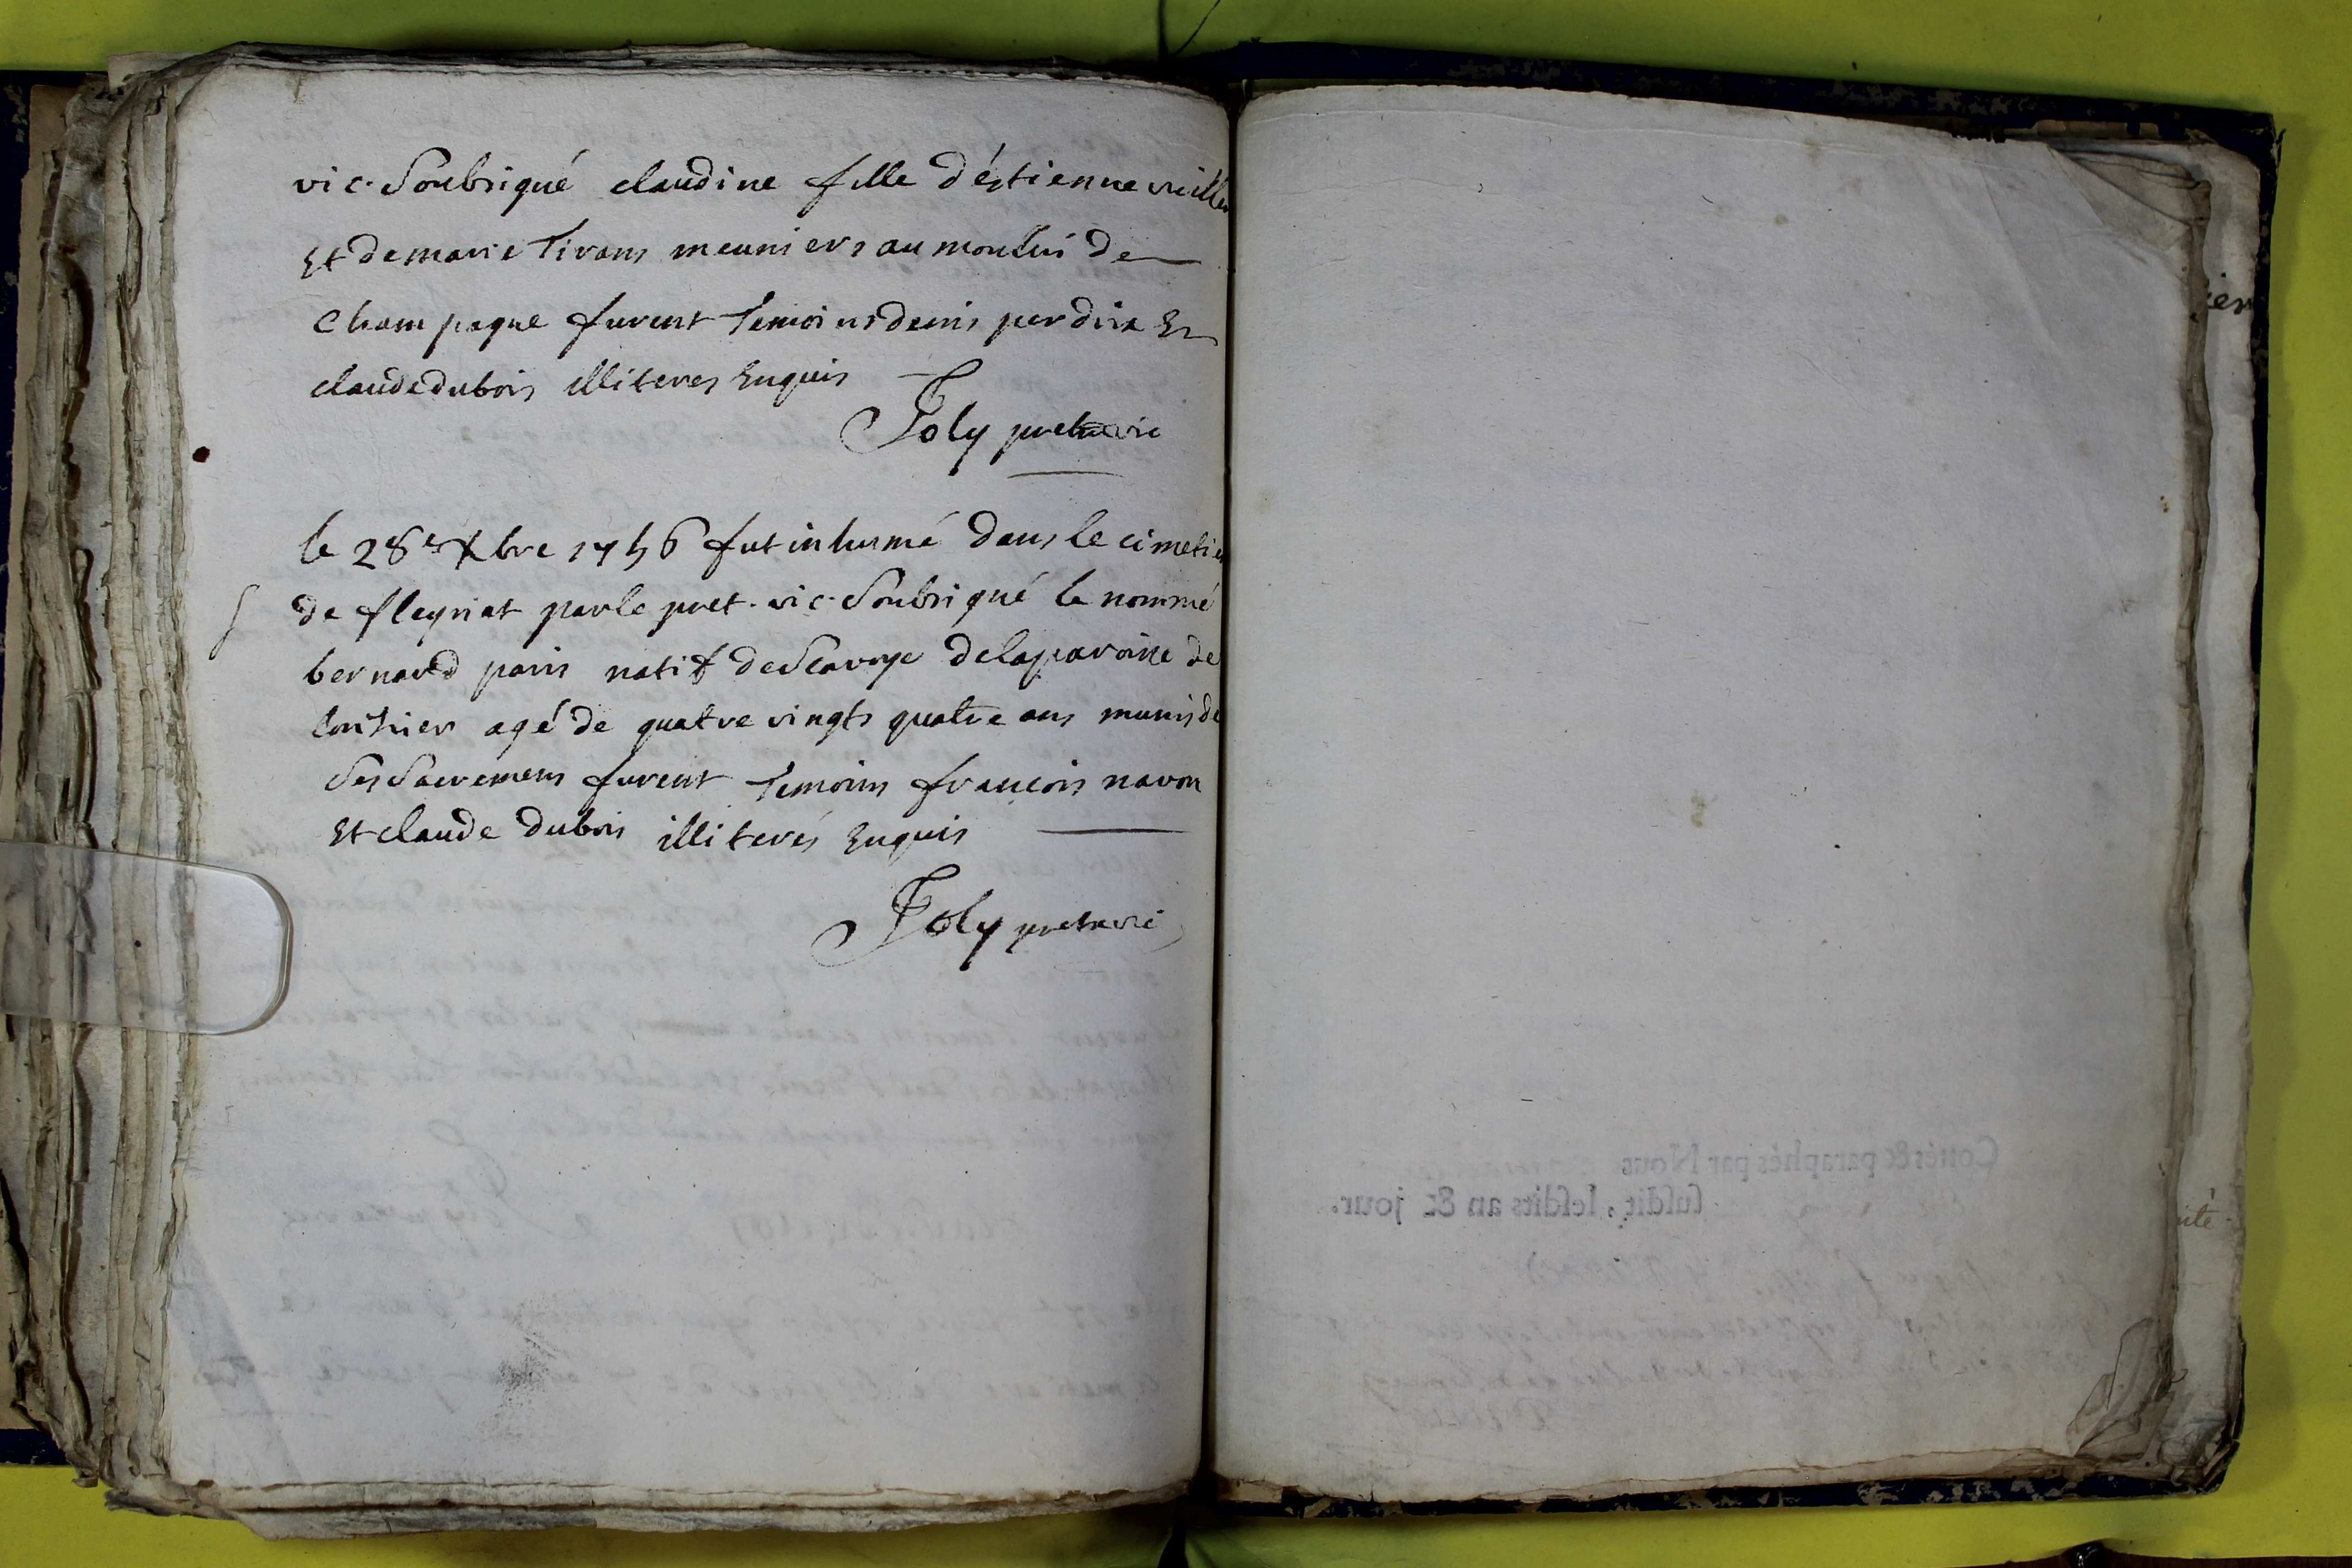 vic. Soubsigné claudine fille d'éstienne vuille
Et de marie Tirans meuniers au moulin de
Champagne furent Temoins denis perdrix Et
claude dubois illiteres Enquis
Joly pret vic
le 28e Xbre 1756 fut inhumé dans le cimetie
de fleyriat par le pret. vic. Soubsigné le nommé
bernard paris natif de Scavoye de la paroisse de
agé de quatre vingts quatre ans munis de
Ses Sacremens furent Temoins francois navon
Et claude dubois illiterés Enquis
Joly pretre vic
Cottés & paraphés par Nous
susdit, lesdits an & jour.